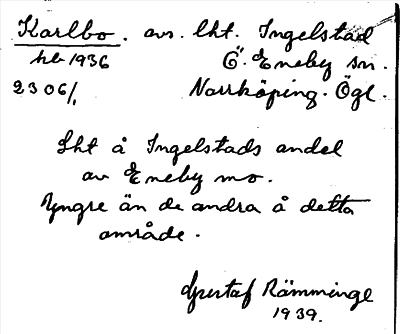 Karlbo. avs. lht. Ingelstad
hb 1936 Ö. Eneby sn.
2306/1 Norrköping. Ögl.
Lht å Ingelstads andel
av Eneby mo.
Yngre än de andra å detta
område.
Gustaf Rämminge
1939.